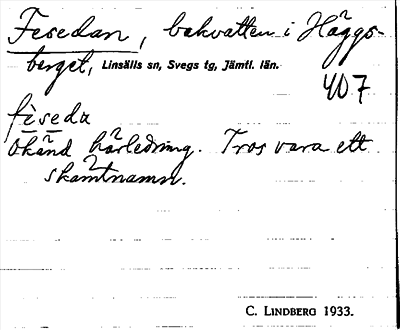 Fesedan, bakvatten i Häggs-
berget, Linsälls sn, Svegs tg, Jämtl. län.
407
fèseda
Okänd härledning. Tros vara ett
skämtnamn.
C. LINDBERG 1933.